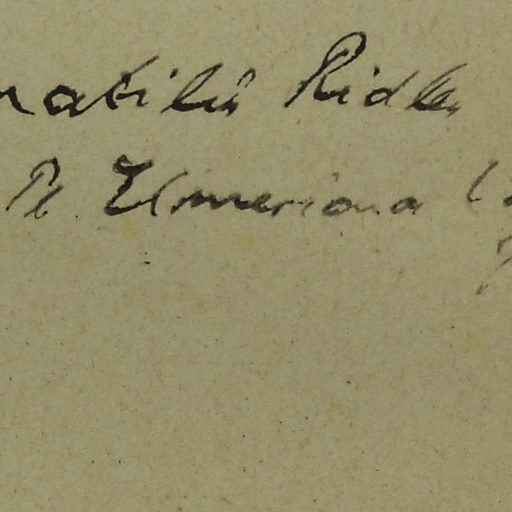 nabilis Ridley
P. Elmeriana (